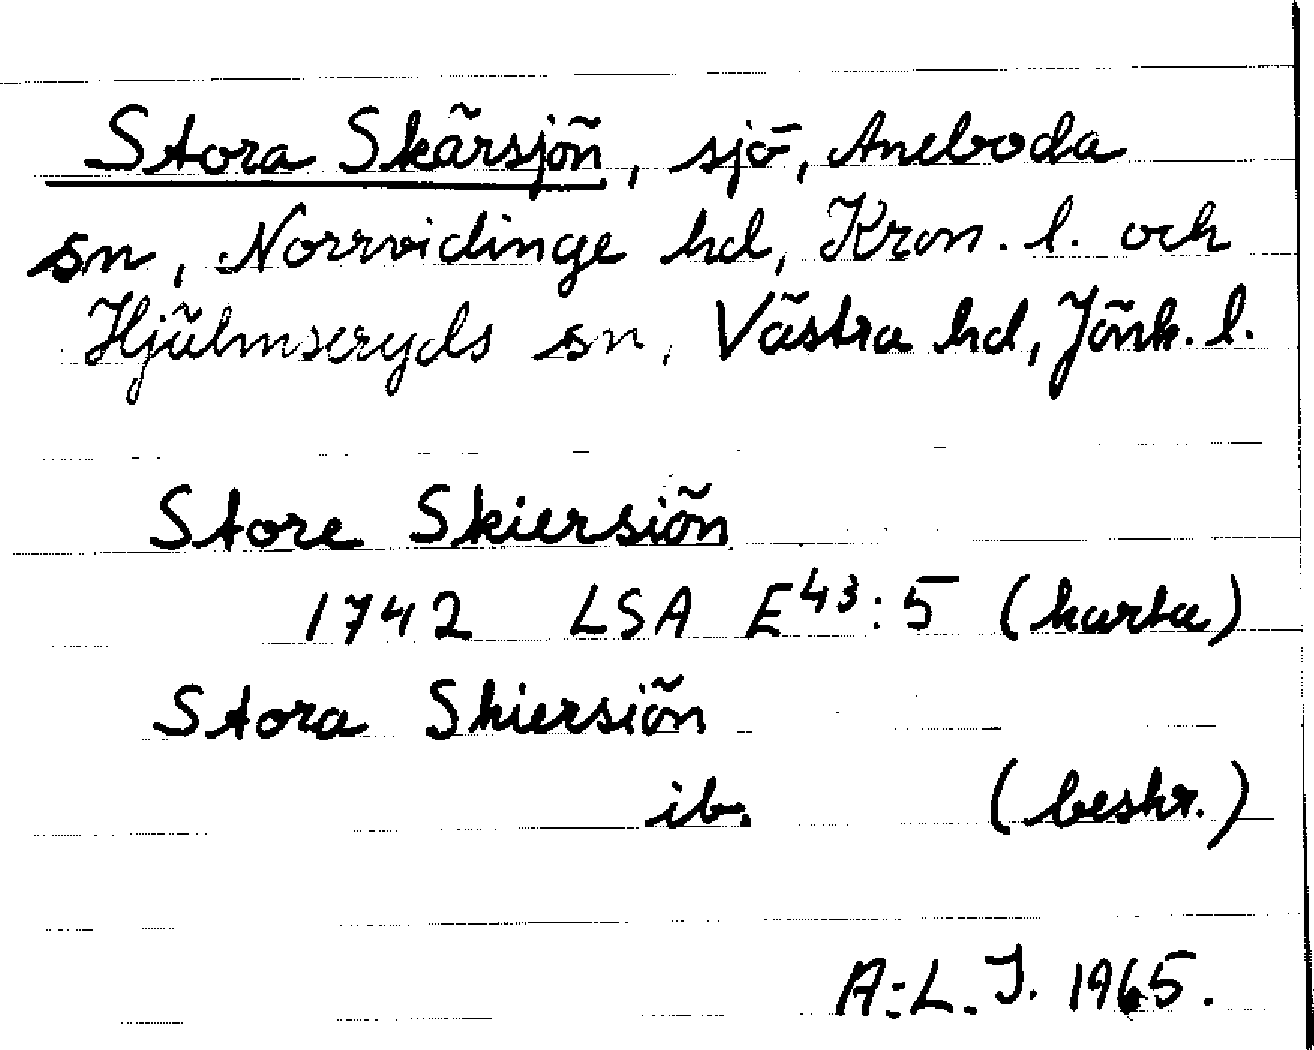 Stora Skärsjön, sjö, Aneboda
sn, Norrvidinge hd, Kron. l. och
Hjälmseryds sn, Västra hd, Jönk. l.
Store Skiersiön
1742 LSA E43:5 (karta)
Stora Skiersiön
ib. (beskr.)
A.-L. J. 1965.